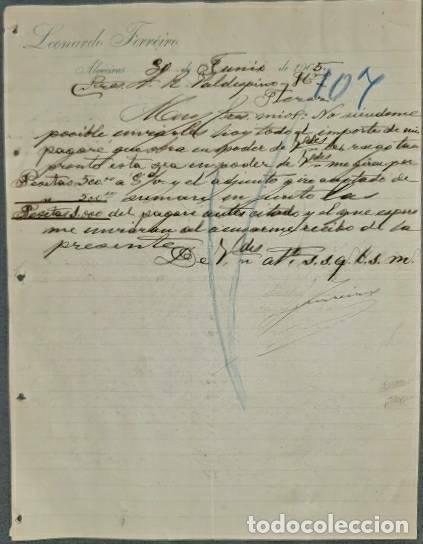 Leonardo Ferreiro
Algeciras 30 de Junio de 1905.
Sres. A. R. Valdespino y Hº
107
Jerez
Muy Sres. mios: No siendome
posible enviarles hoy todo el importe de mi
pagaré que obra en poder de Vdes les ruego tan
pronto esta obra en poder de Vdes me giren por
Pesetas 500 a 8 d/v y el adjunto giro de
" 500 sumaran junto las
Pesetas 1.000 del pagaré antes citado y el que espero
me enviaran al acusarme recibo de la
presente.
De Vdes atº s.s.q.b.s.m.
Ferreiro
todocoleccion.net